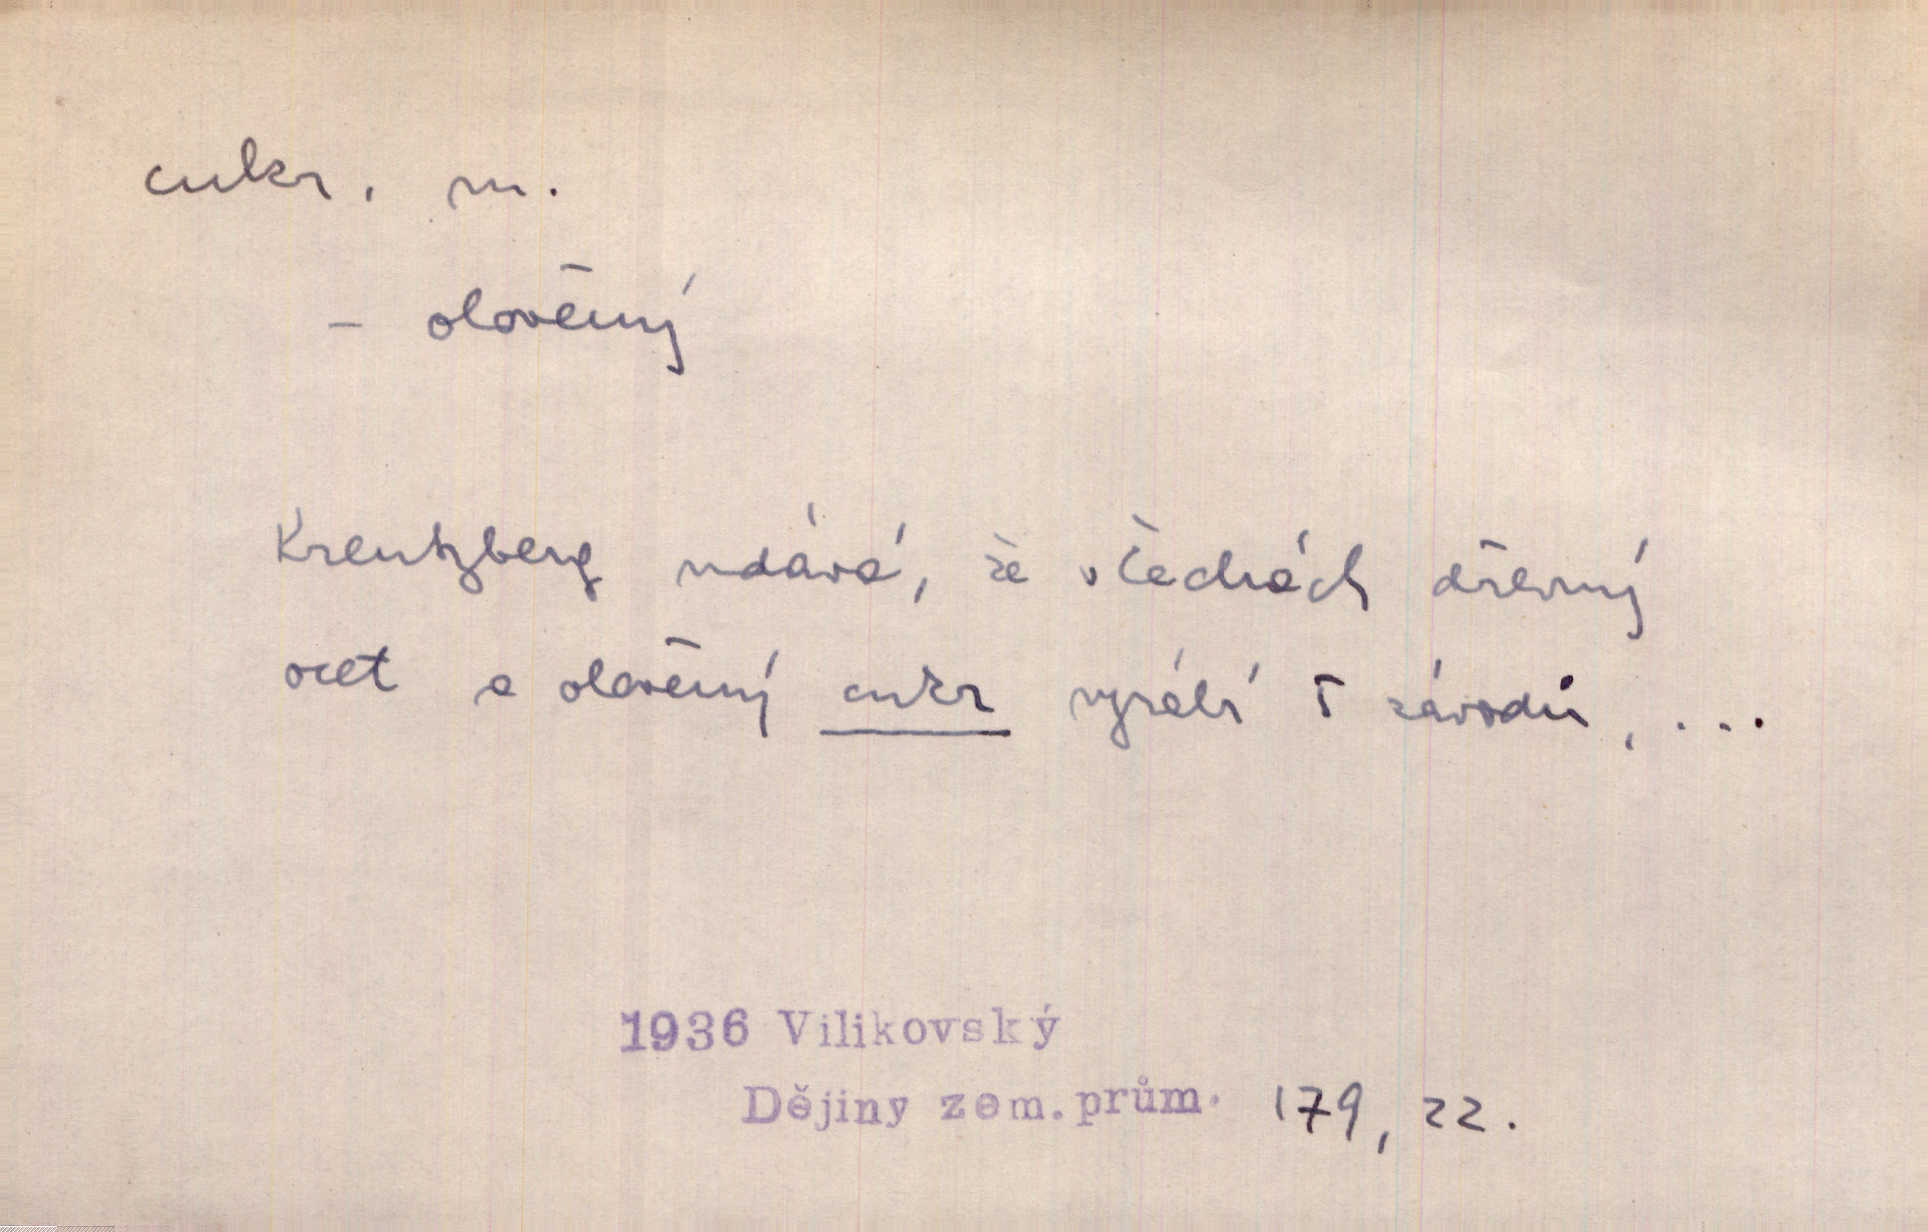 cukr, m.
- olověný
Kreutzberg udává, že v Čechách dřevný
ocet a olověný cukr vyrábí 5 závodů, ...
1936 Vilikovský
Dějiny zem. prům. 179, 22.